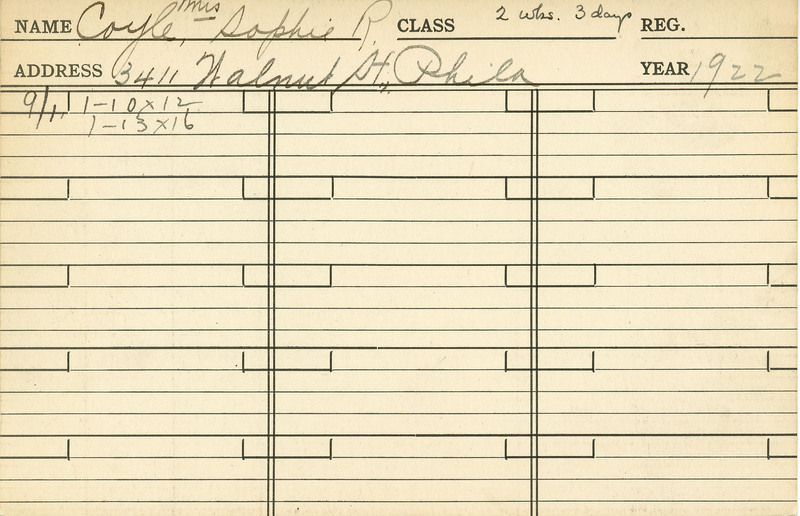 NAME Coyle, Mrs Sophie R. CLASS 2 wks. 3 days REG.
ADDRESS 3411 Walnut St., Phila YEAR 1922
9/11 1-10x12
1-13x16